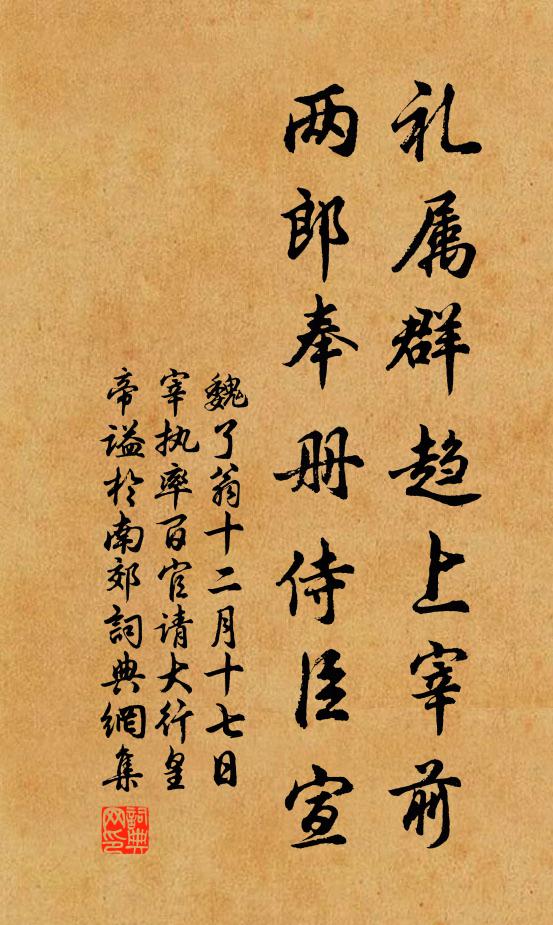 礼属群趋上宰前
两郎奉册侍臣宣
魏了翁十二月十七日
宰执率百官请大行皇
帝谥於南郊詞典網集
詞典
网印